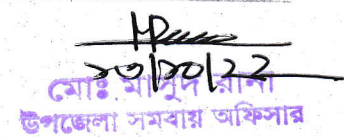 ২৩/১০/২২
মোঃ মাসুদ রানা
উপজেলা সমবায় অফিসার